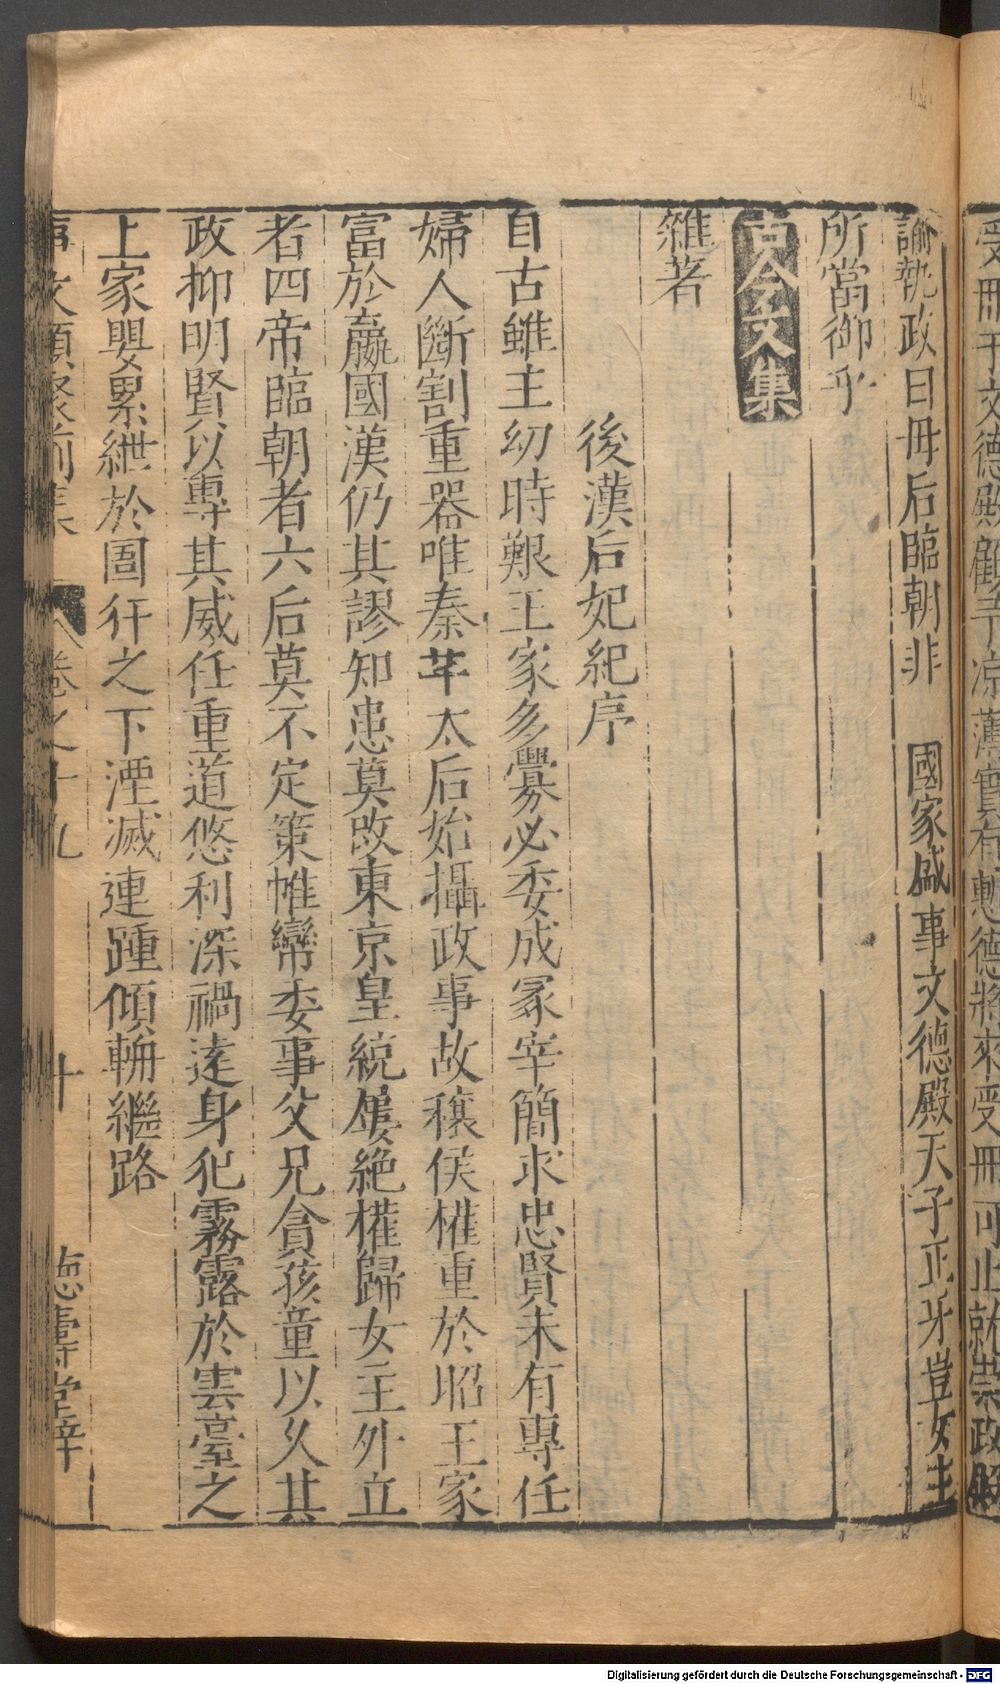 受冊于文德殿顧予凉薄實有慙德將來受冊可止就崇政殿
諭執政曰毋后臨朝非　國家盛事文德殿天子正牙豈女主
所當御乎
古今文集
雜著
後漢后妃紀序
自古雖主幼時艱王家多釁必委成冢宰簡求忠賢未有專任
婦人斷割重器唯秦芉太后始攝政事故穰侯權重於昭王家
富於嬴國漢仍其謬知患莫改東京皇統屢絶權歸女主外立
者四帝臨朝者六后莫不定策帷帟委事父兄貪孩童以久其
政抑明賢以專其威任重道悠利深禍速身犯霧露於雲臺之
上家嬰累紲於圄犴之下湮滅連踵傾輈繼路
事文類聚前集　卷之十九　十　德壽堂梓
Digitalisierung gefördert durch die Deutsche Forschungsgemeinschaft - DFG